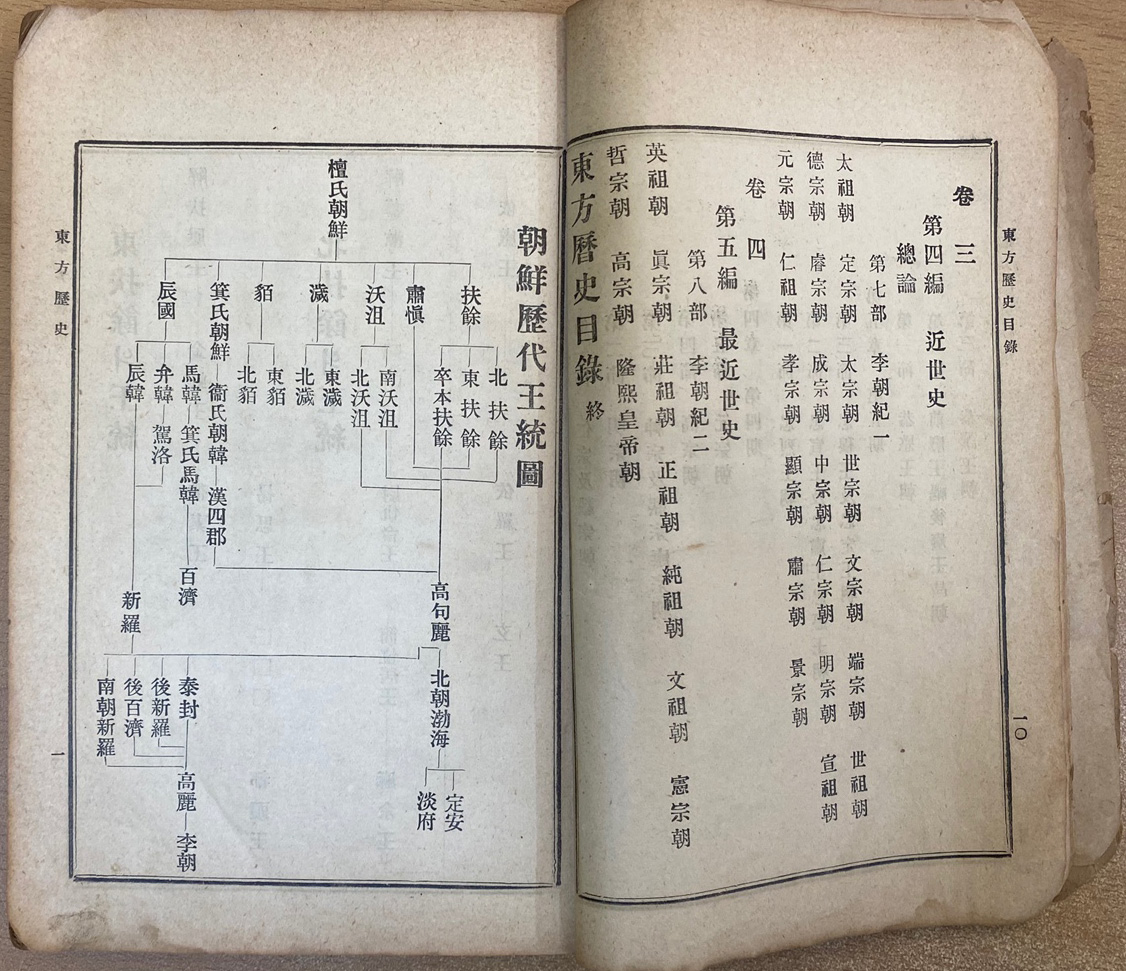 東方歷史目錄
一〇
卷三
第四編 近世史
總論
第七部 李朝紀一
太祖朝 定宗朝 太宗朝 世宗朝 文宗朝 端宗朝 世祖朝
德宗朝 睿宗朝 成宗朝 中宗朝 仁宗朝 明宗朝 宣祖朝
元宗朝 仁祖朝 孝宗朝 顯宗朝 肅宗朝 景宗朝
卷四
第五編 最近世史
第八部 李朝紀二
英祖朝 眞宗朝 莊祖朝 正祖朝 純祖朝 文祖朝 憲宗朝
哲宗朝 高宗朝 隆熙皇帝朝
東方曆史目錄 終
朝鮮歷代王統圖
檀氏朝鮮
扶餘
北扶餘
東扶餘
卒本扶餘
肅愼
沃沮
南沃沮
北沃沮
濊
東濊
北濊
貊
東貊
北貊
箕氏朝鮮
衞氏朝韓
漢四郡
辰國
馬韓
箕氏馬韓
百濟
弁韓
駕洛
辰韓
新羅
高句麗
北朝渤海
定安
淡府
泰封
後新羅
後百濟
南朝新羅
高麗
李朝
東方歷史
一